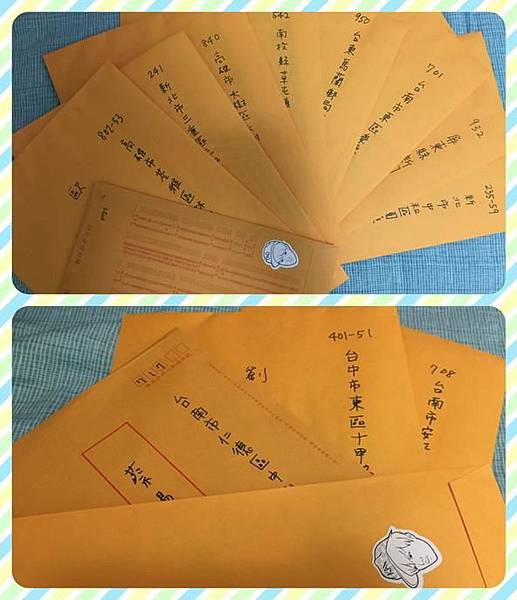 802-53
高雄市苓雅區
241
新北市三重區
840
高雄市大樹區
542
南投縣草屯
950
台東馬蘭郵局
701
台南市東區
932
屏東縣新
235-59
新北市中和區
401-51
台中市東區十甲
708
台南市安
劉
717
台南市仁德區中
蔡易